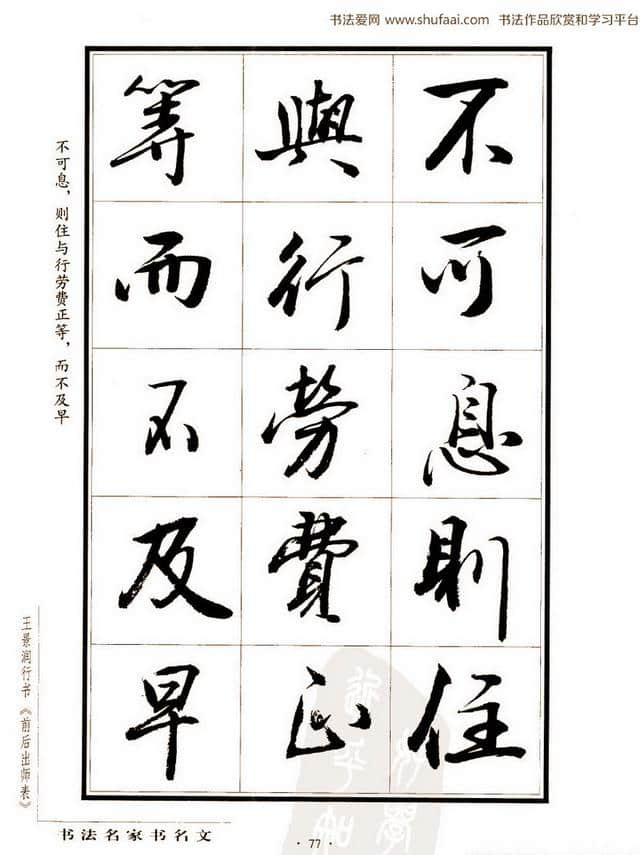 书法爱网 www.shufaai.com 书法作品欣赏和学习平台
不可息則住
與行勞費正
等而不及早
不可息，则住与行劳费正等，而不及早
王景润行书《前后出师表》
书法名家书名文
· 77 ·